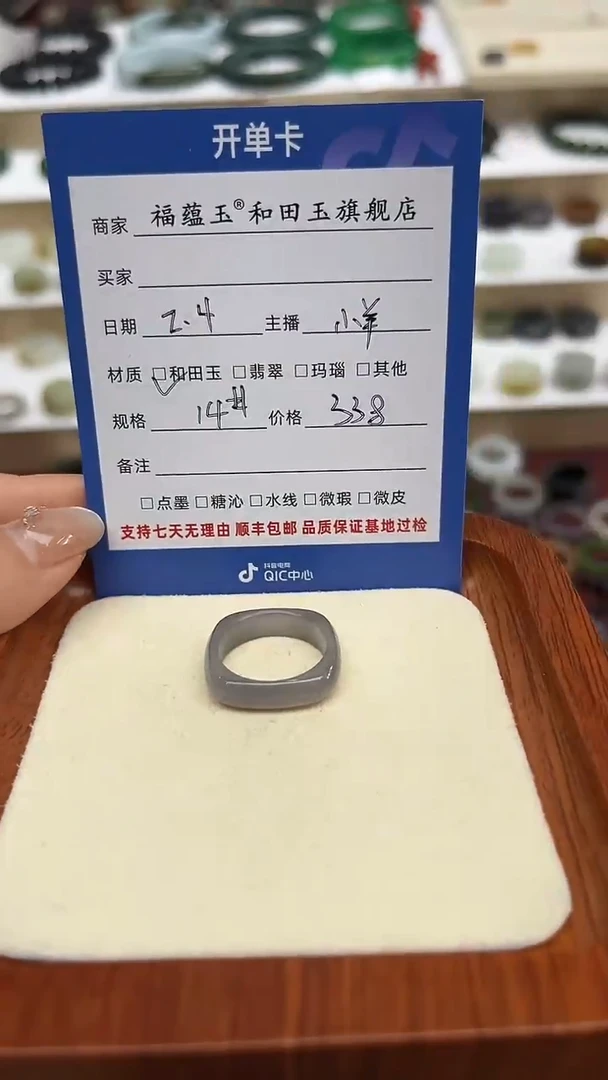 开单卡
商家 福蕴玉®和田玉旗舰店
买家
日期 2.4 主播 小羊
材质 ☑和田玉 □翡翠 □玛瑙 □其他
规格 14# 价格 338
备注
□点墨 □糖沁 □水线 □微瑕 □微皮
支持七天无理由 顺丰包邮 品质保证基地过检
抖音电商
QIC中心